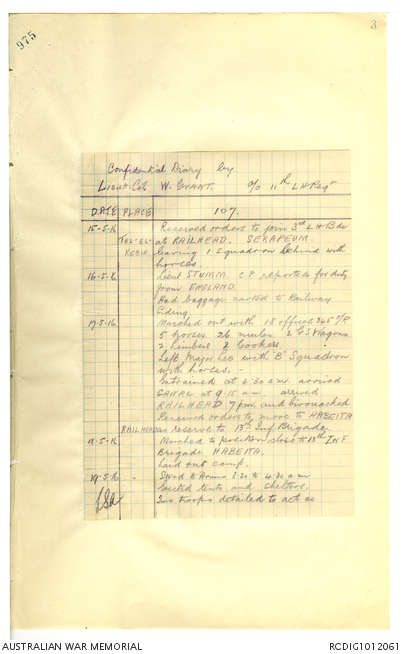 3
975
Confidential Diary by
Lieut-Col W. GRANT. O/C 11th LH Regt
DATE PLACE 107.
15-5-16 Received orders to join 3rd LH Bde
TEL-EL-KEBIR at RAILHEAD. SERAPEUM.
leaving 1 Squadron behind with
horses.
16-5-16 Lieut STURM. C.F reported for duty
from ENGLAND.
Had baggage carted to Railway
Siding.
17-5-16 Marched out with 18 officers 365 O/R
5 horses 26 mules 2 GS Wagons
2 Limbers 2 Cookers
Left Major Lee with B Squadron
with horses. -
Entrained at 4.30 a.m. arrived
CANAL at 9.15 am arrived
RAILHEAD 7 pm and bivouached
Received orders to move to HABEITA
RAILHEAD as reserve to 13th Inf Brigade
18-5-16 Marched to position close to 13th INF
Brigade HABEITA.
Laid out camp.
19-5-16 " Stood to Arms 3.30 to 4.30 am
Erected tents and shelters.
Two troops detailed to act as
AUSTRALIAN WAR MEMORIAL
RCDIG1012061